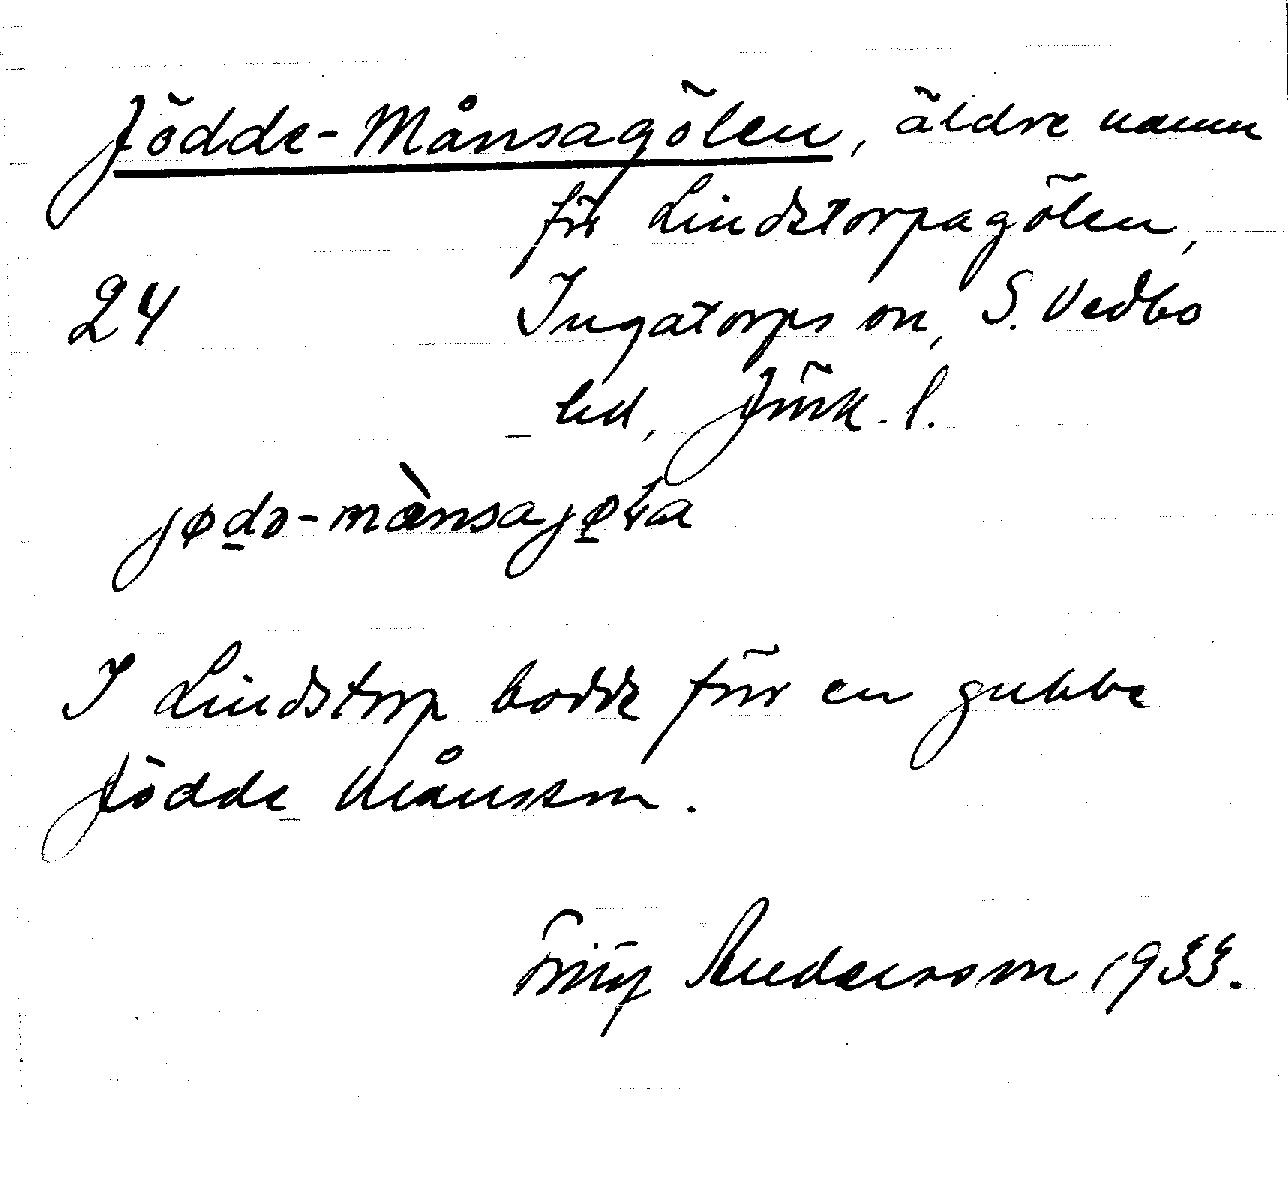 Jödde-Månsagölen, äldre namn
för Lindstorpagölen,
24 Ingatorps sn, S. Vedbo
hd, Jönk. l.
jødə-mànsajøla
I Lindstorp bodde förr en gubbe
Jödde Månsson.
Andersson 1933.